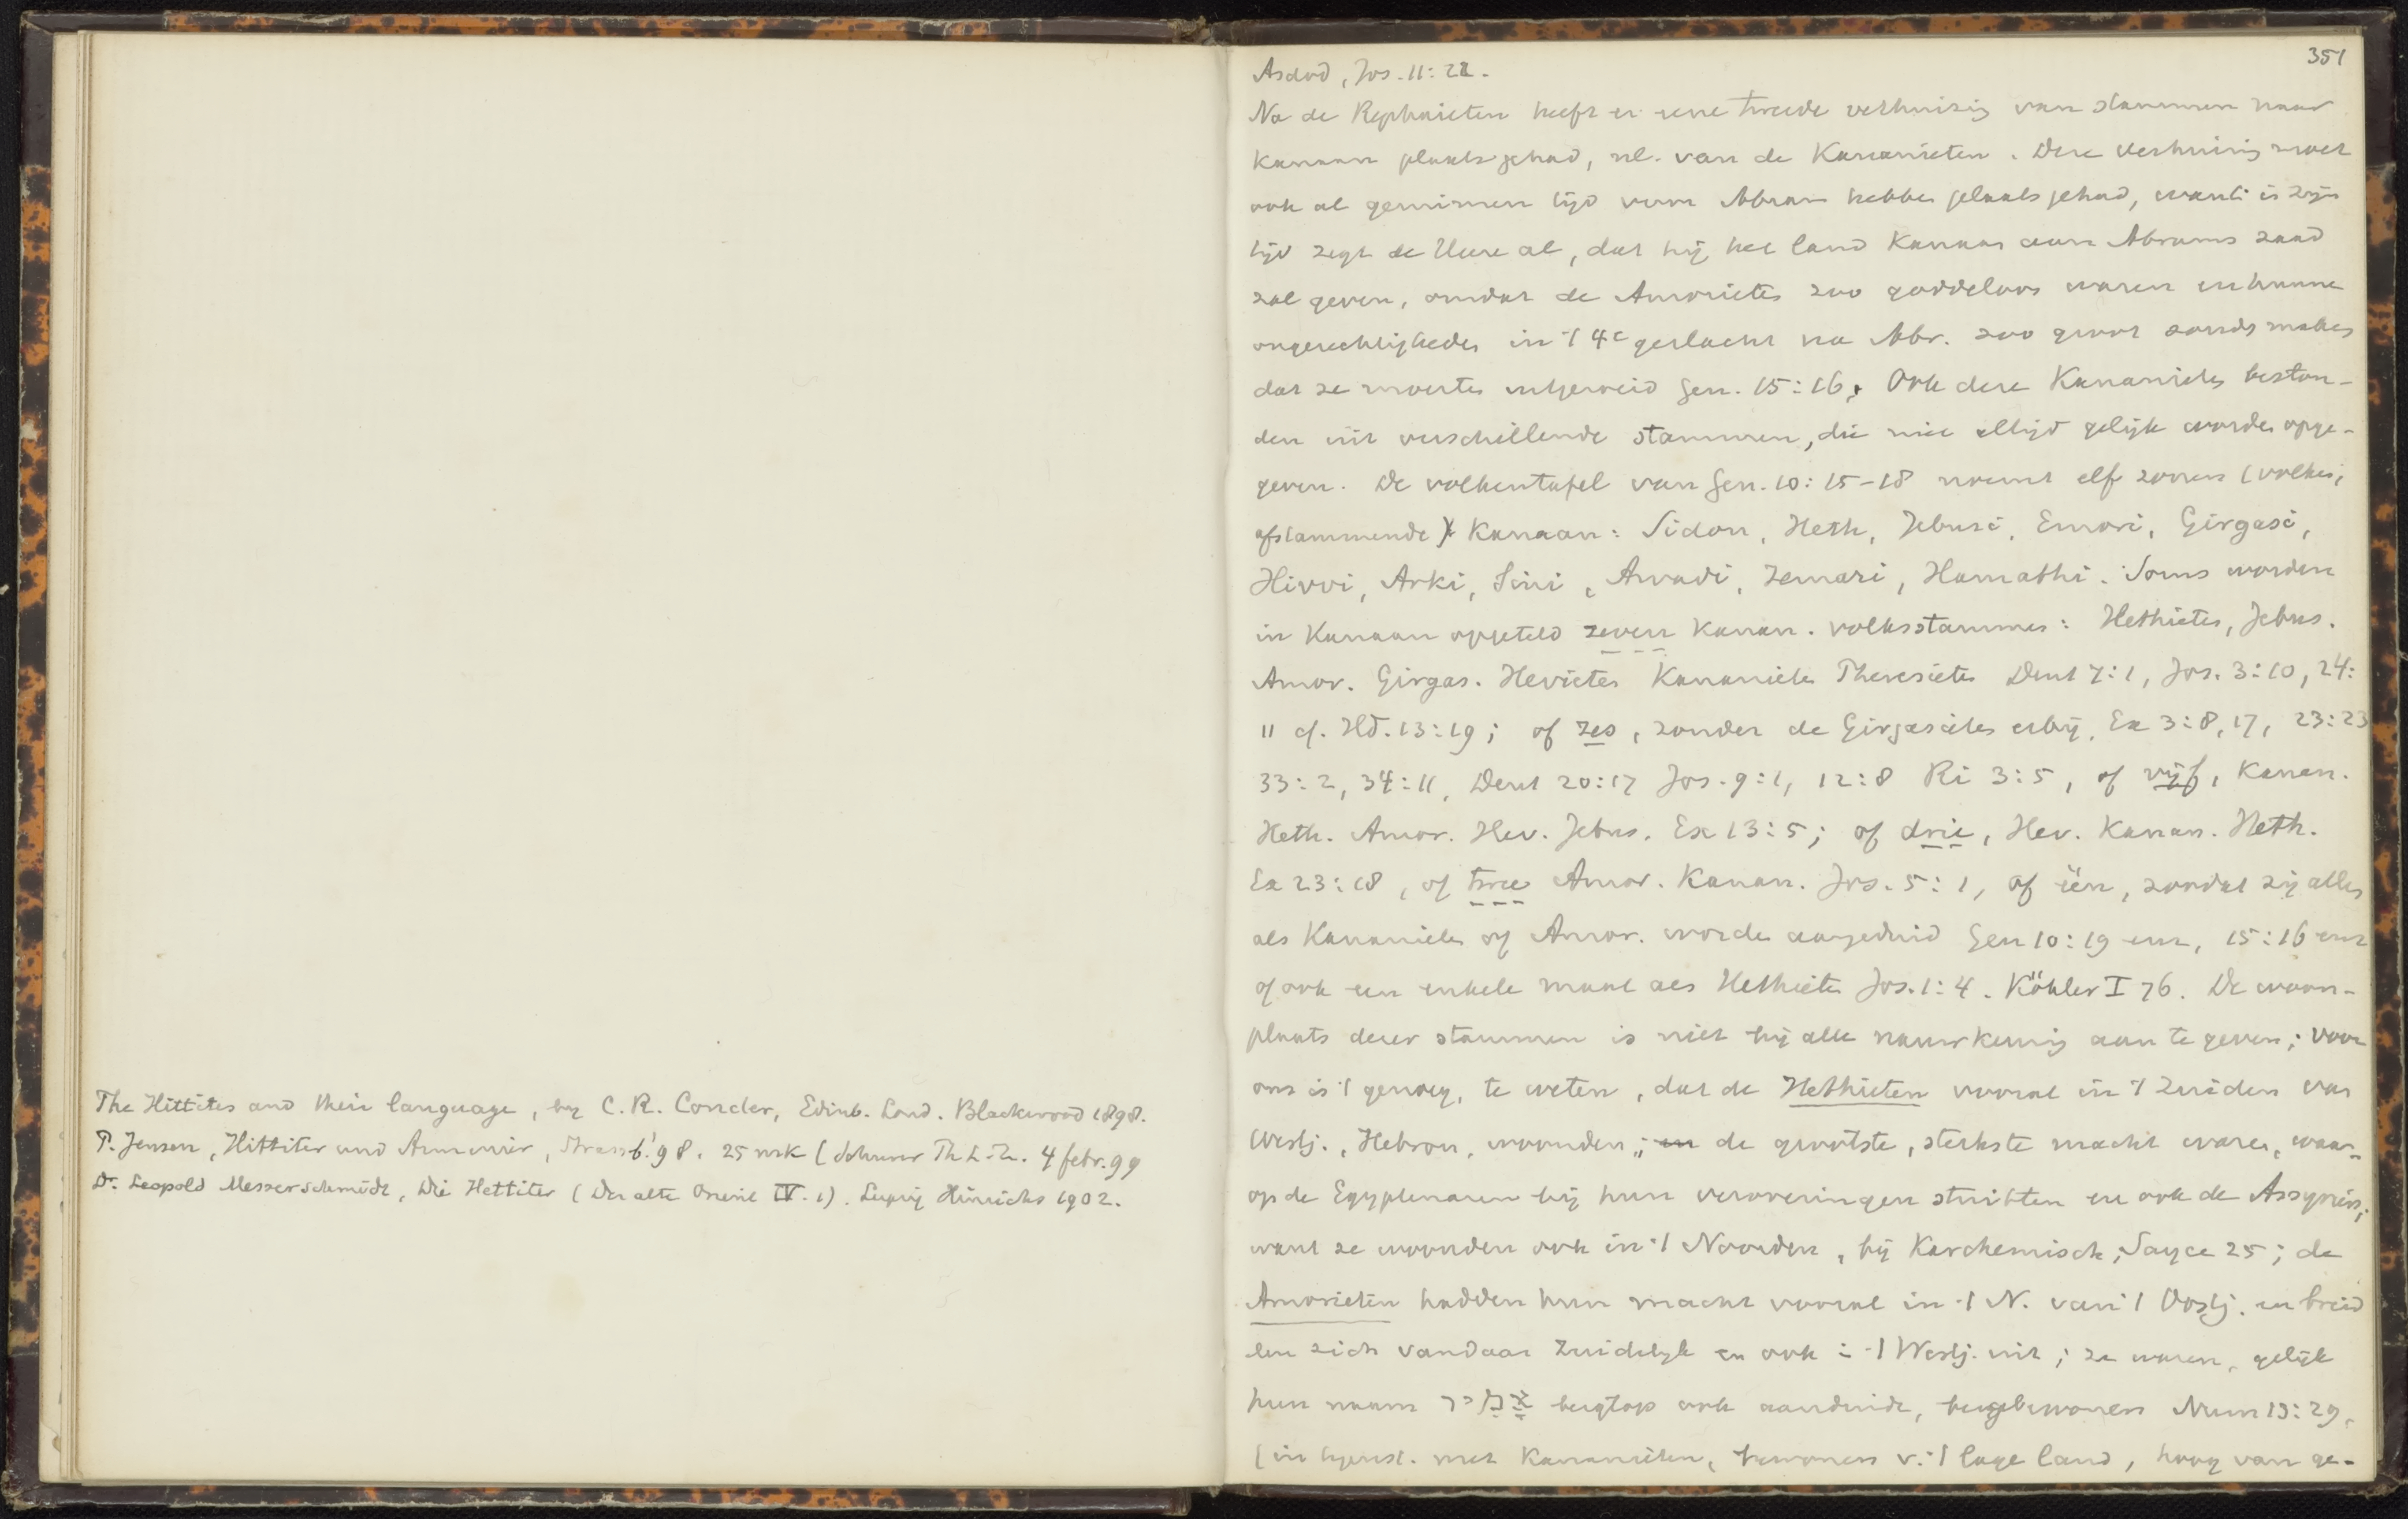 The Hittites and their language, by C. R. Conder, Edinb. Lond. Blackwood 1898.
P. Jensen, Hittiter und Armenier, Strassb. '98. 25 mk (Schurer Th L. Z. 4 febr. 99
Dr. Leopold Messerschmidt, Die Hettiter (Der alte Orient IV. 1). Leipzig Hinrichs 1902.
351
Asdod, Jos. 11:22.
Na de Rephaieten heeft er eene tweede verhuizing van stammen naar
Kanaan plaats gehad, nl. van de Kananieten. Deze verhuizing moet
ook al geruimen tijd voor Abram hebben plaats gehad, want in zijn
tijd zegt de Heere al, dat hij het land Kanaan aan Abrams zaad
zal geven, omdat de Amorieten zoo goddeloos waren en hunne
ongerechtigheden in 't 4e geslacht na Abr. zoo groot zouden maken
dat ze moesten uitgeroeid Gen. 15:16. Ook deze Kananieten beston-
den uit verschillende stammen, die niet altijd gelijk worden opge-
geven. De volkentafel van Gen. 10:15-18 noemt elf zonen (volken,
afstammende) v Kanaan: Sidon, Heth, Jebusi, Emori, Girgasi,
Hivvi, Arki, Sini, Arvadi, Zemari, Hamathi. Soms worden
in Kanaan opgeteld zeven Kanan. volksstammen: Hethieten, Jebus.
Amor. Girgas. Hevieten Kananieten Pheresieten Deut 7:1, Jos. 3:10, 24:
11 cf. Hd. 13:19; of zes, zonder de Girgasieten erbij, Ex 3:8, 17, 23:23
33:2, 34:11, Deut 20:17 Jos. 9:1, 12:8 Ri 3:5, of vijf, Kanan.
Heth. Amor. Hev. Jebus. Ex 13:5; of drie, Hev. Kanan. Heth.
Ex 23:18, of twee Amor. Kanan. Jos. 5:1, of één, zoodat zij allen
als Kananieten of Amor. worden aangeduid Gen 10:19 enz, 15:16 enz
of ook een enkele maal als Hethieten Jos. 1:4. Köhler I 76. De woon-
plaats dezer stammen is niet bij alle nauwkeurig aan te geven; voor
ons is 't genoeg, te weten, dat de Hethieten vooral in 't Zuiden van
Westj., Hebron, woonden; en de grootste, sterkste macht waren, waar-
op de Egyptenaren bij hun veroveringen stuitten en ook de Assyriërs;
want ze woonden ook in 't Noorden, bij Karchemisch; Sayce 25; de
Amorieten hadden hun macht vooral in 't N. van 't Oostj. en breid
den zich vandaar Zuidelijk en ook in 't Westj. uit; ze waren, gelijk
hun naam bergtop ook aanduidt, bergbewoners Num 13:29,
(in tegenst. met Kananieten, bewoners v. 't lage land, hoog van ge-